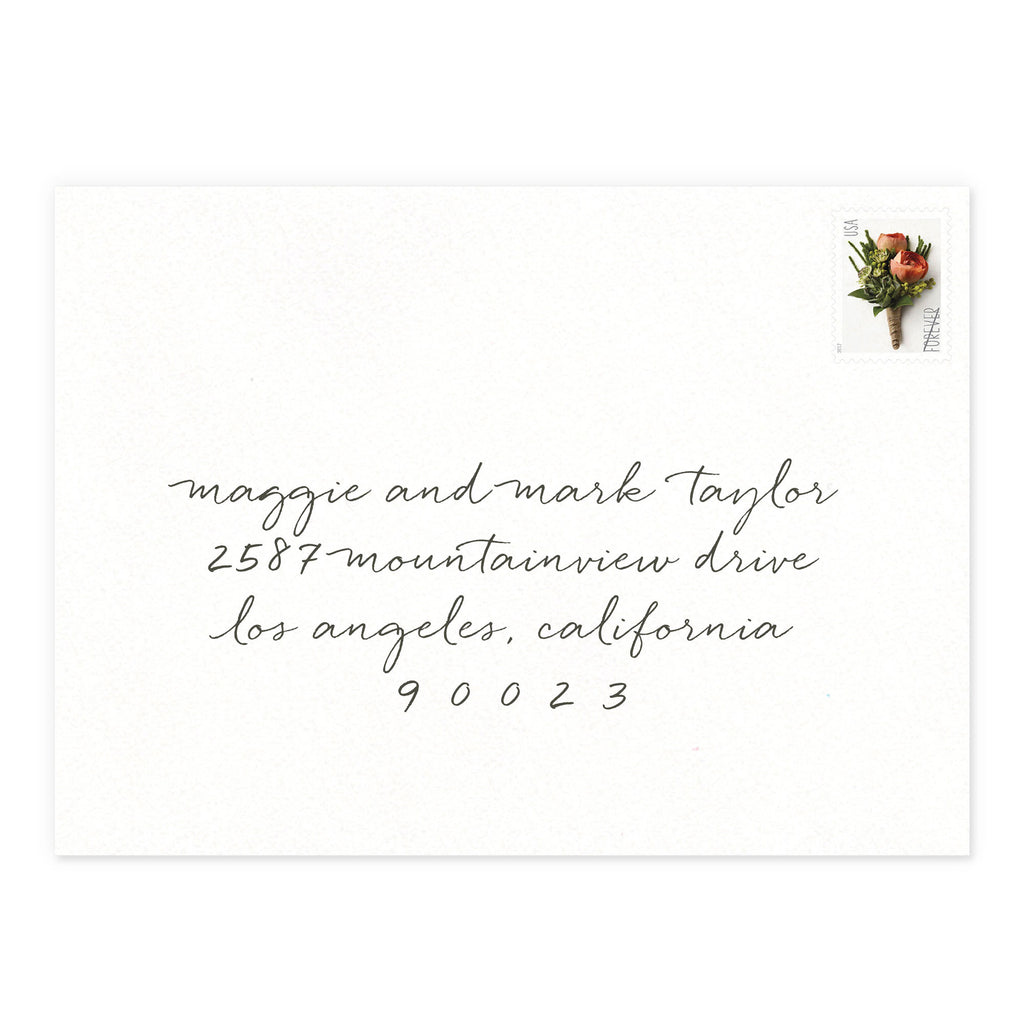 USA
FOREVER
2017
maggie and mark taylor
2587 mountainview drive
los angeles, california
90023